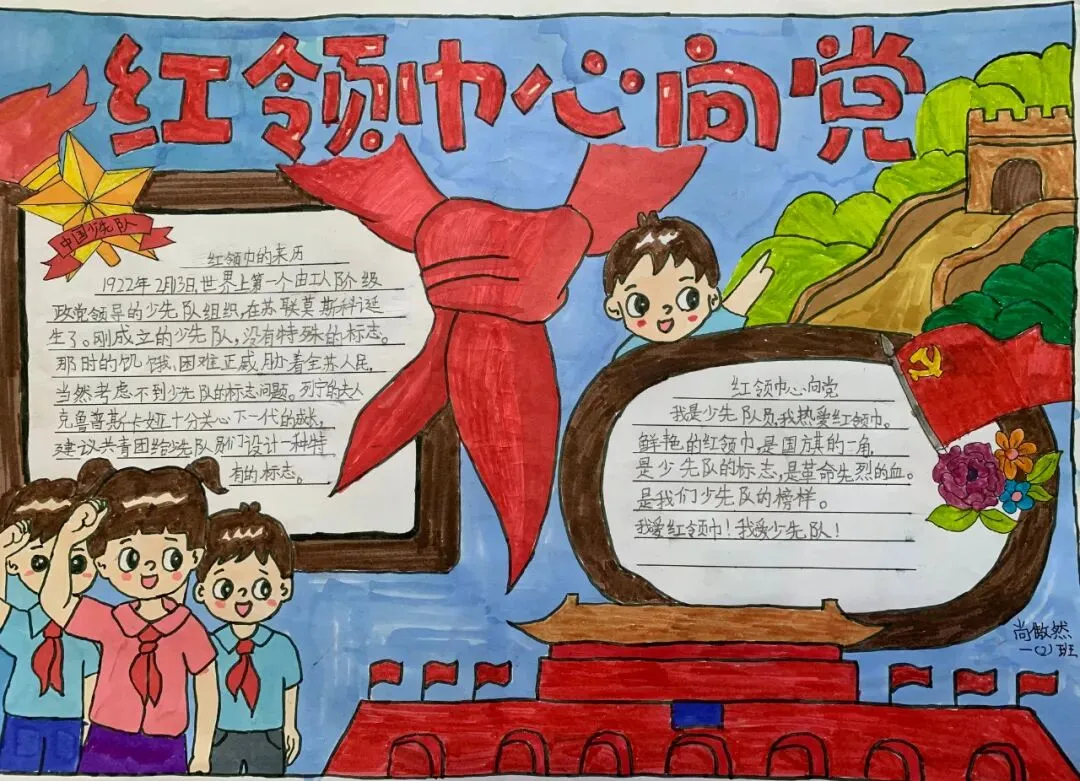 红领巾心向党
中国少先队
红领巾的来历
1922年2月13日,世界上第一个由工人阶级
政党领导的少先队组织,在苏联莫斯科诞
生了。刚成立的少先队,没有特殊的标志。
那时的饥饿、困难正威胁着全苏人民,
当然考虑不到少先队的标志问题。列宁的夫人
克鲁普斯卡娅十分关心下一代的成长,
建议共青团给少先队员们设计一种特
有的标志。
红领巾心向党
我是少先队员,我热爱红领巾。
鲜艳的红领巾,是国旗的一角,
是少先队的标志,是革命先烈的血。
是我们少先队的榜样。
我爱红领巾!我爱少先队!
尚傲然
一(2)班